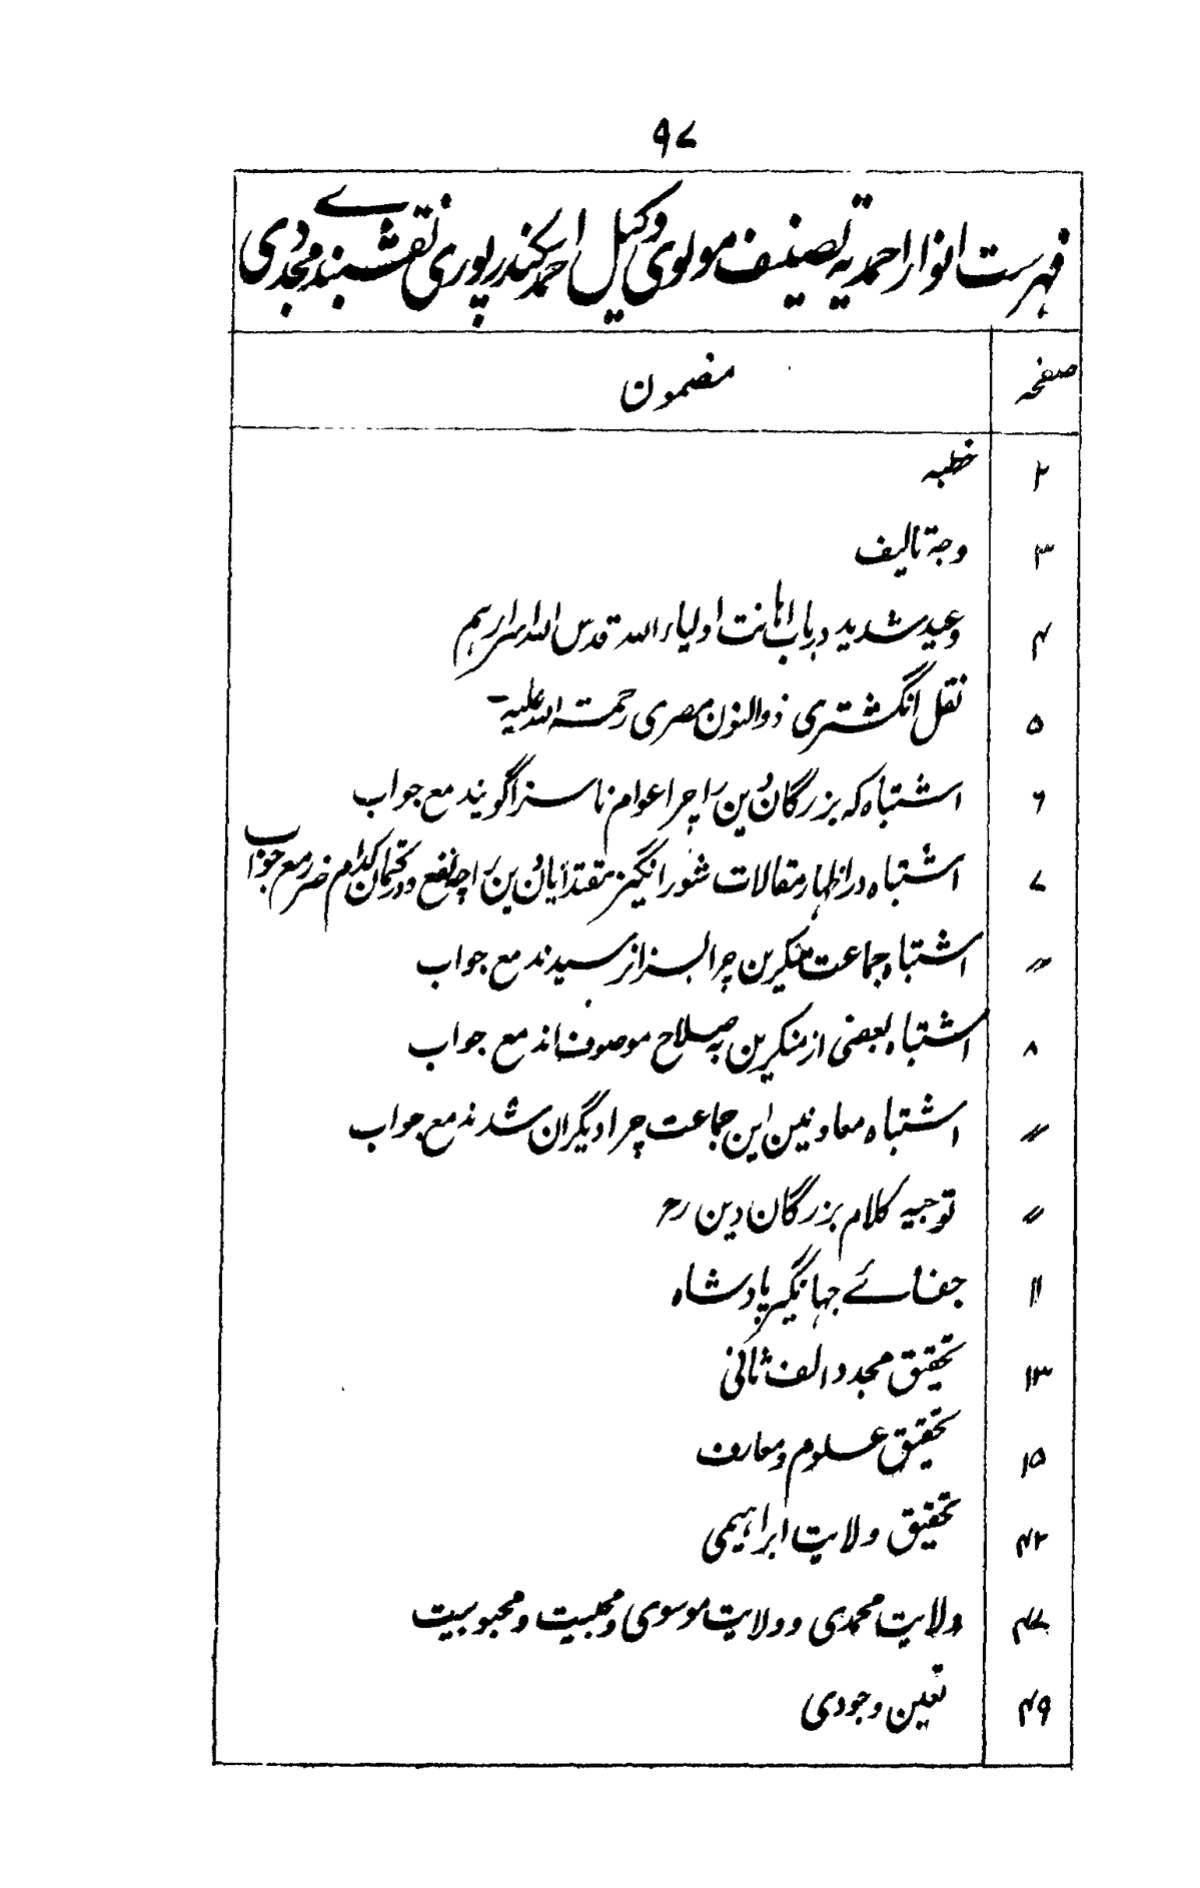 ۹۷
فہرست انوار احمدیہ تصنیف مولوی وکیل احمد سکندرپوری نقشبندے مجددی
صفحہ مضمون
۲ خطبہ
۳ وجہ تالیف
۴ وعید شدید درباب اہانت اولیاء اللہ قدس اللہ اسرارہم
۵ نقل انگشتری ذوالنون مصری رحمتہ اللہ علیہ
۶ اشتباہ کہ بزرگان دین را چرا عوام ناسزا گویند مع جواب
۷ اشتباہ در اظہار مقالات شور انگیز مقتدایان دین را چہ نفع و در کتمان کدام ضرر مع جواب
〃 اشتباہ جماعت منکرین چرا بسزا نرسیدند مع جواب
۸ اشتباہ بعضی از منکرین بہ صلاح موصوف اند مع جواب
〃 اشتباہ معاونین این جماعت چرا دیگران شدند مع جواب
〃 توجیہ کلام بزرگان دین رح
۱۱ جفائے جہانگیر پادشاہ
۱۳ تحقیق مجدد الف ثانی
۱۵ تحقیق علوم و معارف
۴۲ تحقیق ولایت ابراہیمی
۴۷ ولایت محمدی و ولایت موسوی و محبیت و محبوبیت
۴۹ تعین وجودی